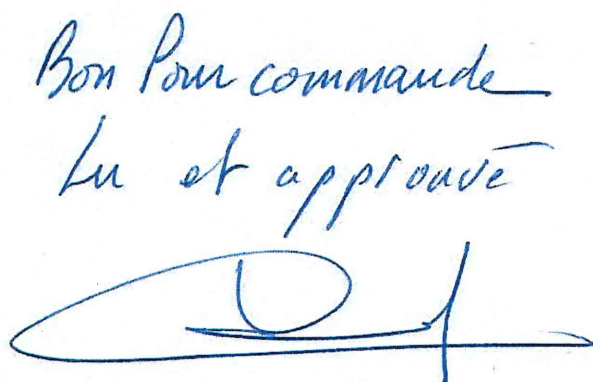 Bon Pour commande
Lu et approuvé